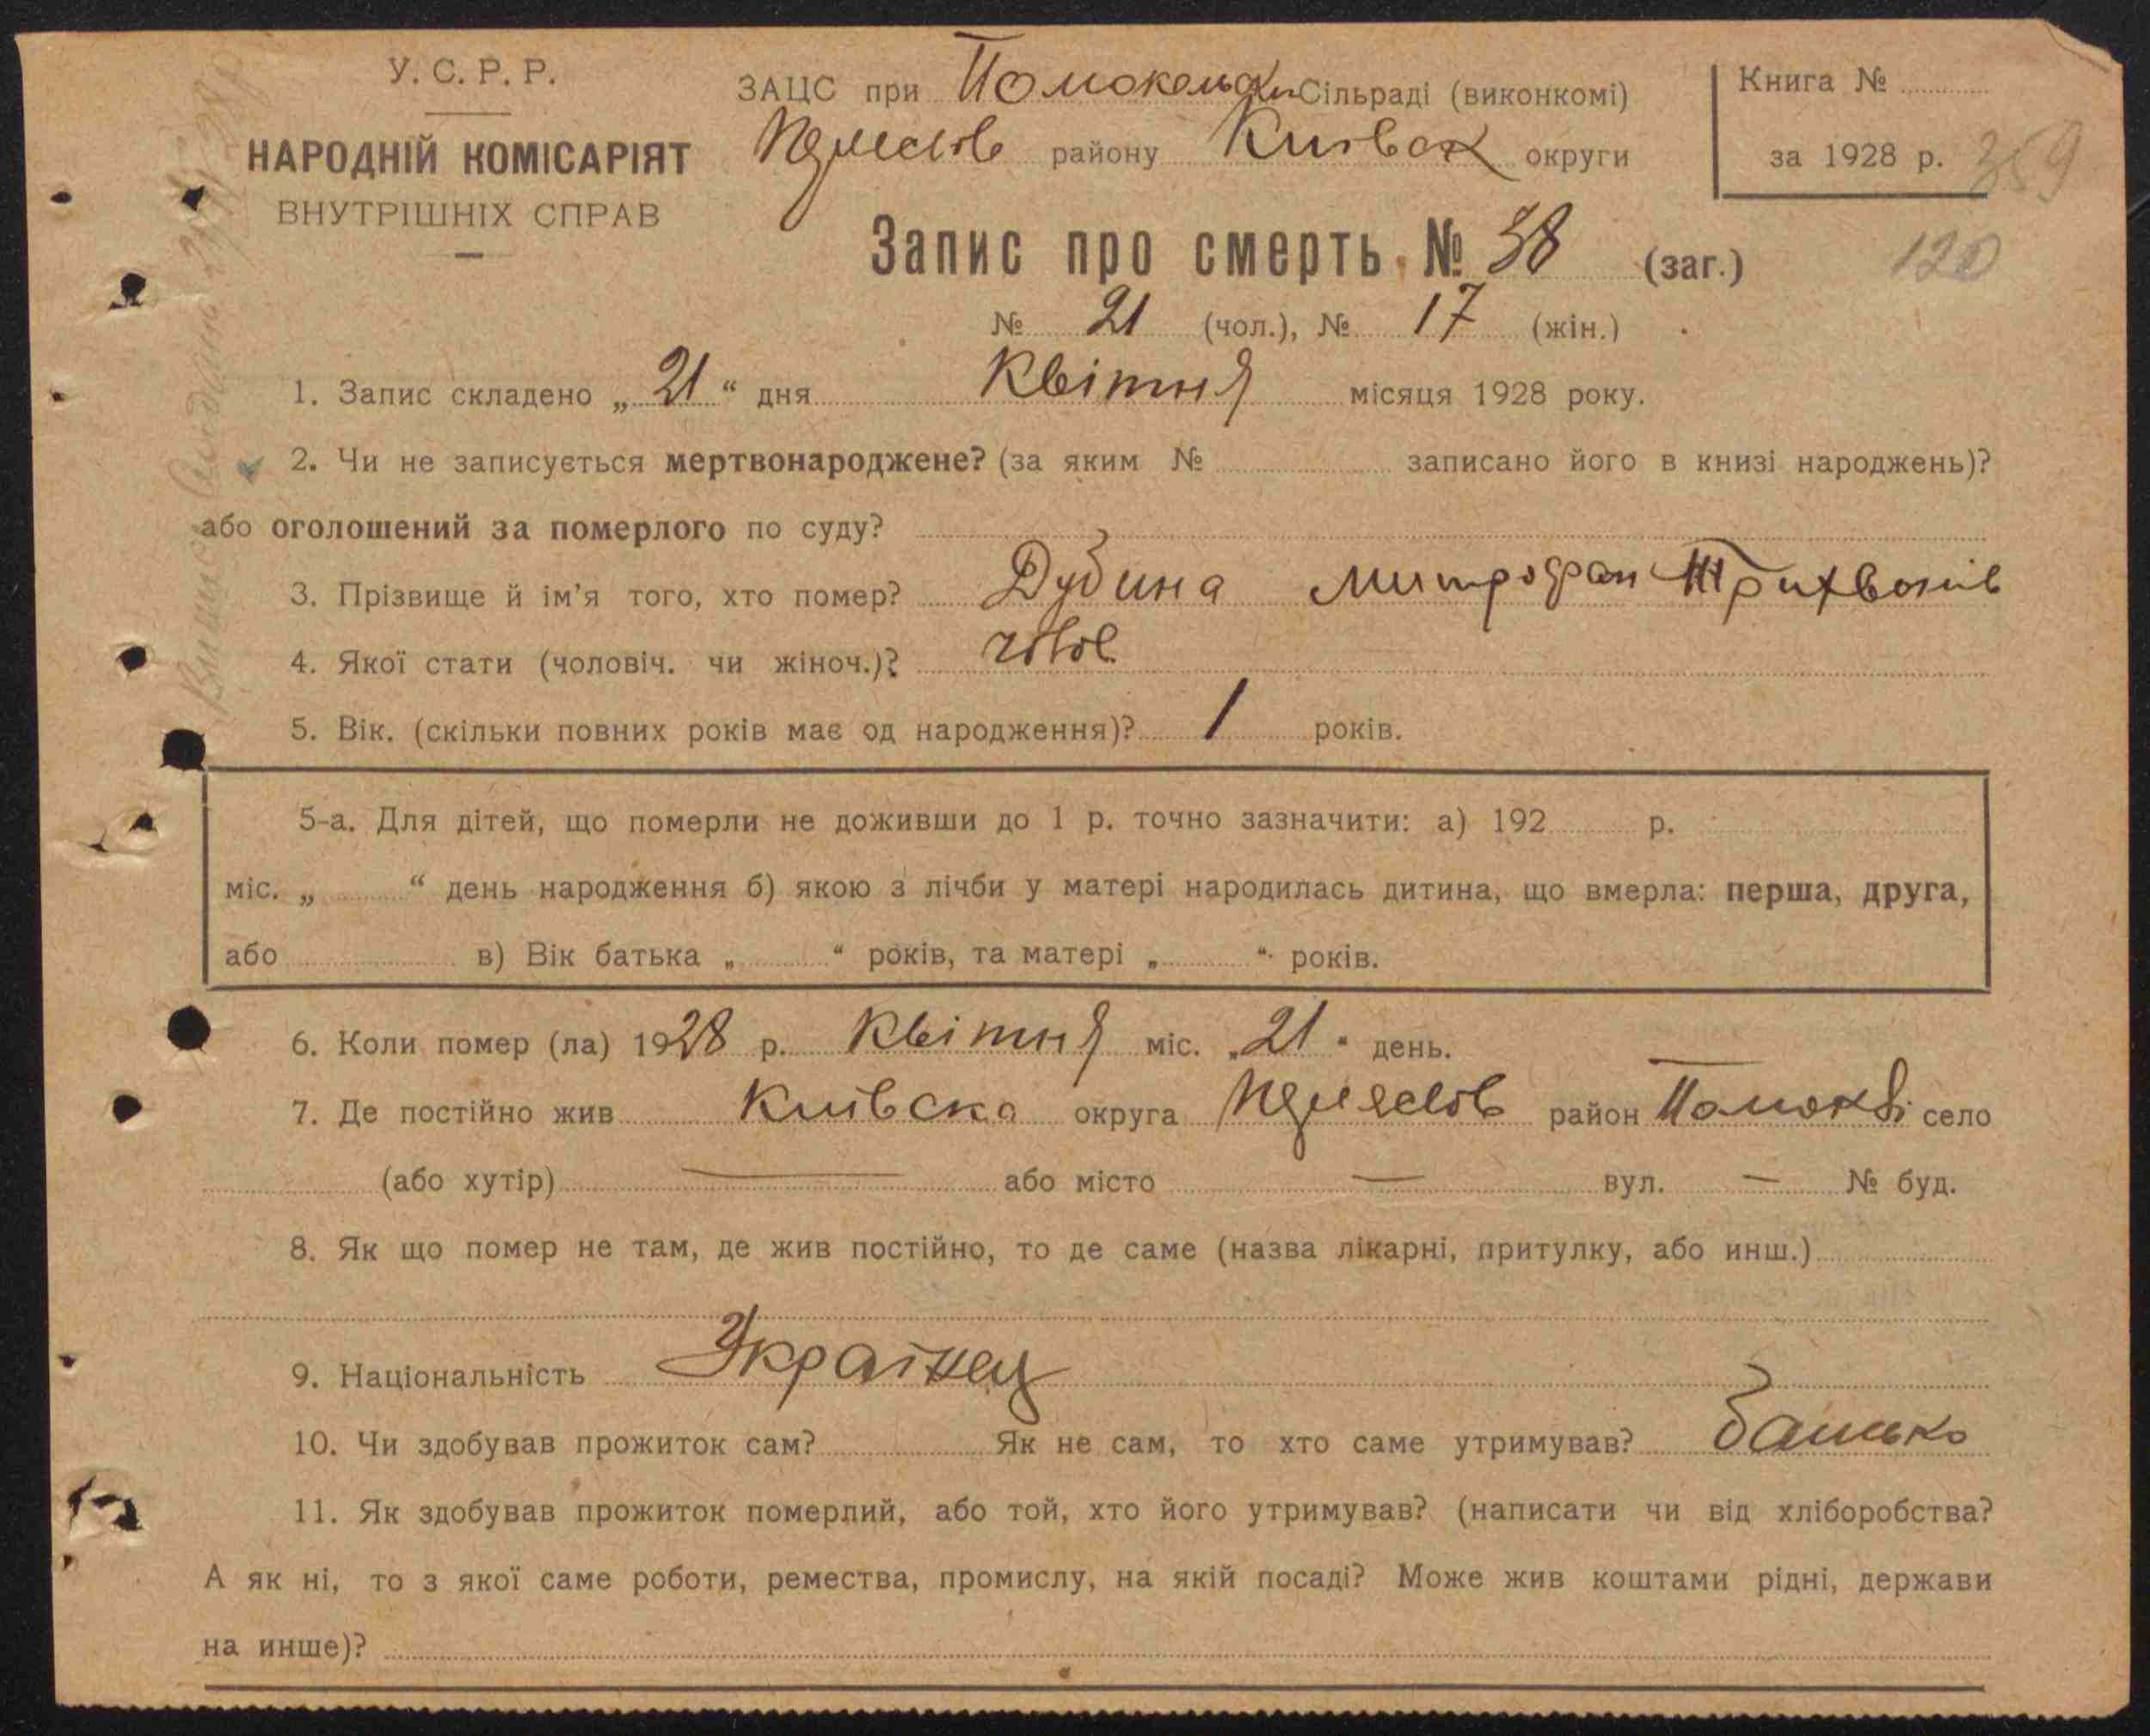 У. С. Р. Р.
НАРОДНІЙ КОМІСАРІЯТ
ВНУТРІШНІХ СПРАВ
ЗАЦС при Помокельськ Сільраді (виконкомі)
району Київськ округи
Книга №
за 1928 р. 359
Запис про смерть № 38 (заг.) 120
№ 21 (чол.), № 17 (жін.)
1. Запис складено „ 21 “ дня Квітня місяця 1928 року.
2. Чи не записується мертвонароджене? (за яким № записано його в книзі народжень)?
або оголошений за померлого по суду?
3. Прізвище й ім’я того, хто помер? Дубина Митрофан Трихвонів
4. Якої стати (чоловіч. чи жіноч.)? чолов
5. Вік. (скільки повних років має од народження)? 1 років.
5-а. Для дітей, що померли не доживши до 1 р. точно зазначити: а) 192 р.
міс. „ “ день народження б) якою з лічби у матері народилась дитина, що вмерла: перша, друга,
або в) Вік батька „ “ років, та матері „ “ років.
6. Коли помер (ла) 1928 р. Квітня міс. „ 21 “ день.
7. Де постійно жив Київска округа район село
(або хутір) — або місто — вул. — № буд.
8. Як що помер не там, де жив постійно, то де саме (назва лікарні, притулку, або инш.)
9. Національність Українец
10. Чи здобував прожиток сам? Як не сам, то хто саме утримував? батько
11. Як здобував прожиток померлий, або той, хто його утримував? (написати чи від хліборобства?
А як ні, то з якої саме роботи, ремества, промислу, на якій посаді? Може жив коштами рідні, держави
на инше)?